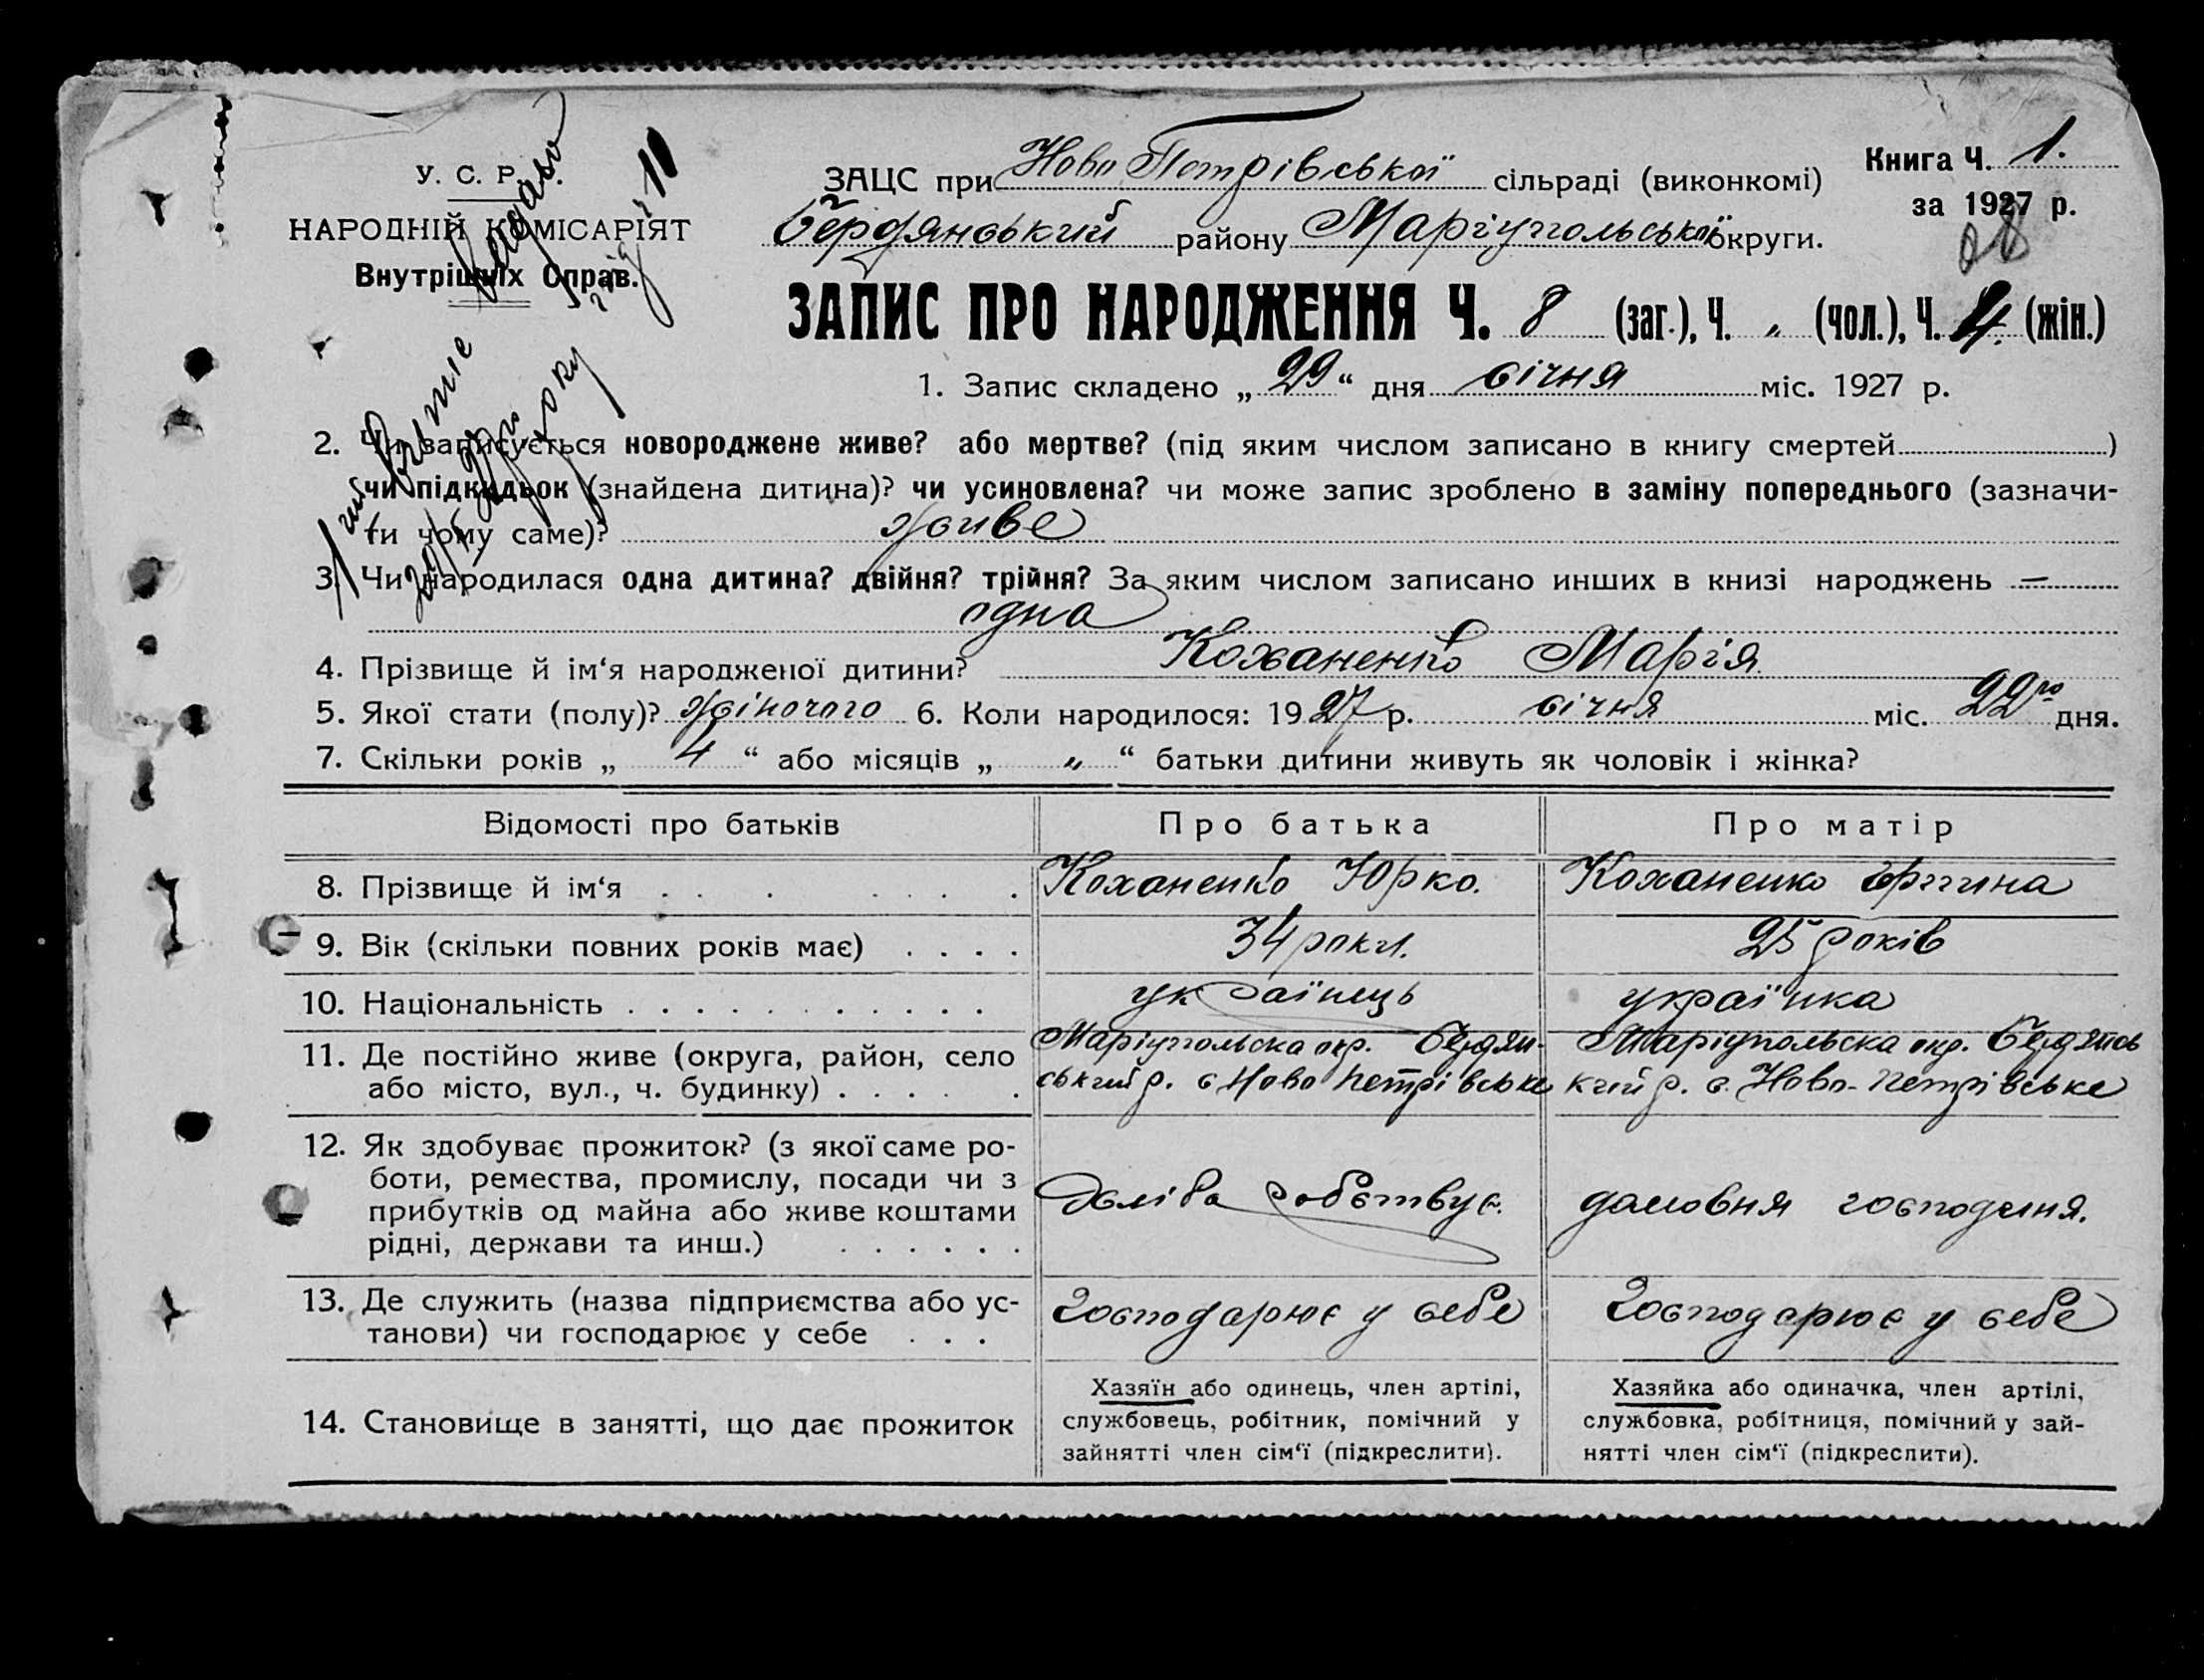 У. С. Р. Р.
НАРОДНІЙ КОМІСАРІЯТ
Внутрішніх Справ.
ЗАЦС при Ново Петрівської сільраді (виконкомі)
Книга Ч. 1.
за 1927 р.
Бердянський району Маріупольської округи.
28
ЗАПИС ПРО НАРОДЖЕННЯ Ч. 8 (заг.), Ч. „ (чол.), Ч. 4. (жін.)
1. Запис складено „ 29 “ дня січня міс. 1927 р.
2. Чи записується новороджене живе? або мертве? (під яким числом записано в книгу смертей )
чи підкидьок (знайдена дитина)? чи усиновлена? чи може запис зроблено в заміну попереднього (зазначи-
ти чому саме)? живе
3. Чи народилася одна дитина? двійня? трійня? За яким числом записано инших в книзі народжень —
одна
4. Прізвище й ім‘я народженої дитини? Коханенко Марія.
5. Якої стати (полу)? жіночого 6. Коли народилося: 1927 р. січня міс. 22го дня.
7. Скільки років „ 4 “ або місяців „ „ “ батьки дитини живуть як чоловік і жінка?
Відомості про батьків Про батька Про матір
8. Прізвище й ім‘я . . . . . . . Коханенко Юрко. Коханенко
9. Вік (скільки повних років має) . . . . 34 роки. 25 років
10. Національність . . . . . . . . . . . українець українка
11. Де постійно живе (округа, район, село Маріупольска окр. Бердян- Маріупольска окр. Бердянсь
або місто, вул., ч. будинку) . . . . . ський р. с Ново Петрівське кий р. с. Ново-Петрівське
12. Як здобуває прожиток? (з якої саме ро-
боти, ремества, промислу, посади чи з
прибутків од майна або живе коштами хліборобствує. домовня господиня.
рідні, держави та инш.) . . . . . .
13. Де служить (назва підприємства або ус- Господарює у себе Господарює у себе
танови) чи господарює у себе . . .
14. Становище в занятті, що дає прожиток
Хазяїн або одинець, член артілі,
службовець, робітник, помічний у
зайнятті член сім‘ї (підкреслити).
Хазяйка або одиначка, член артілі,
службовка, робітниця, помічний у зай-
нятті член сім‘ї (підкреслити).